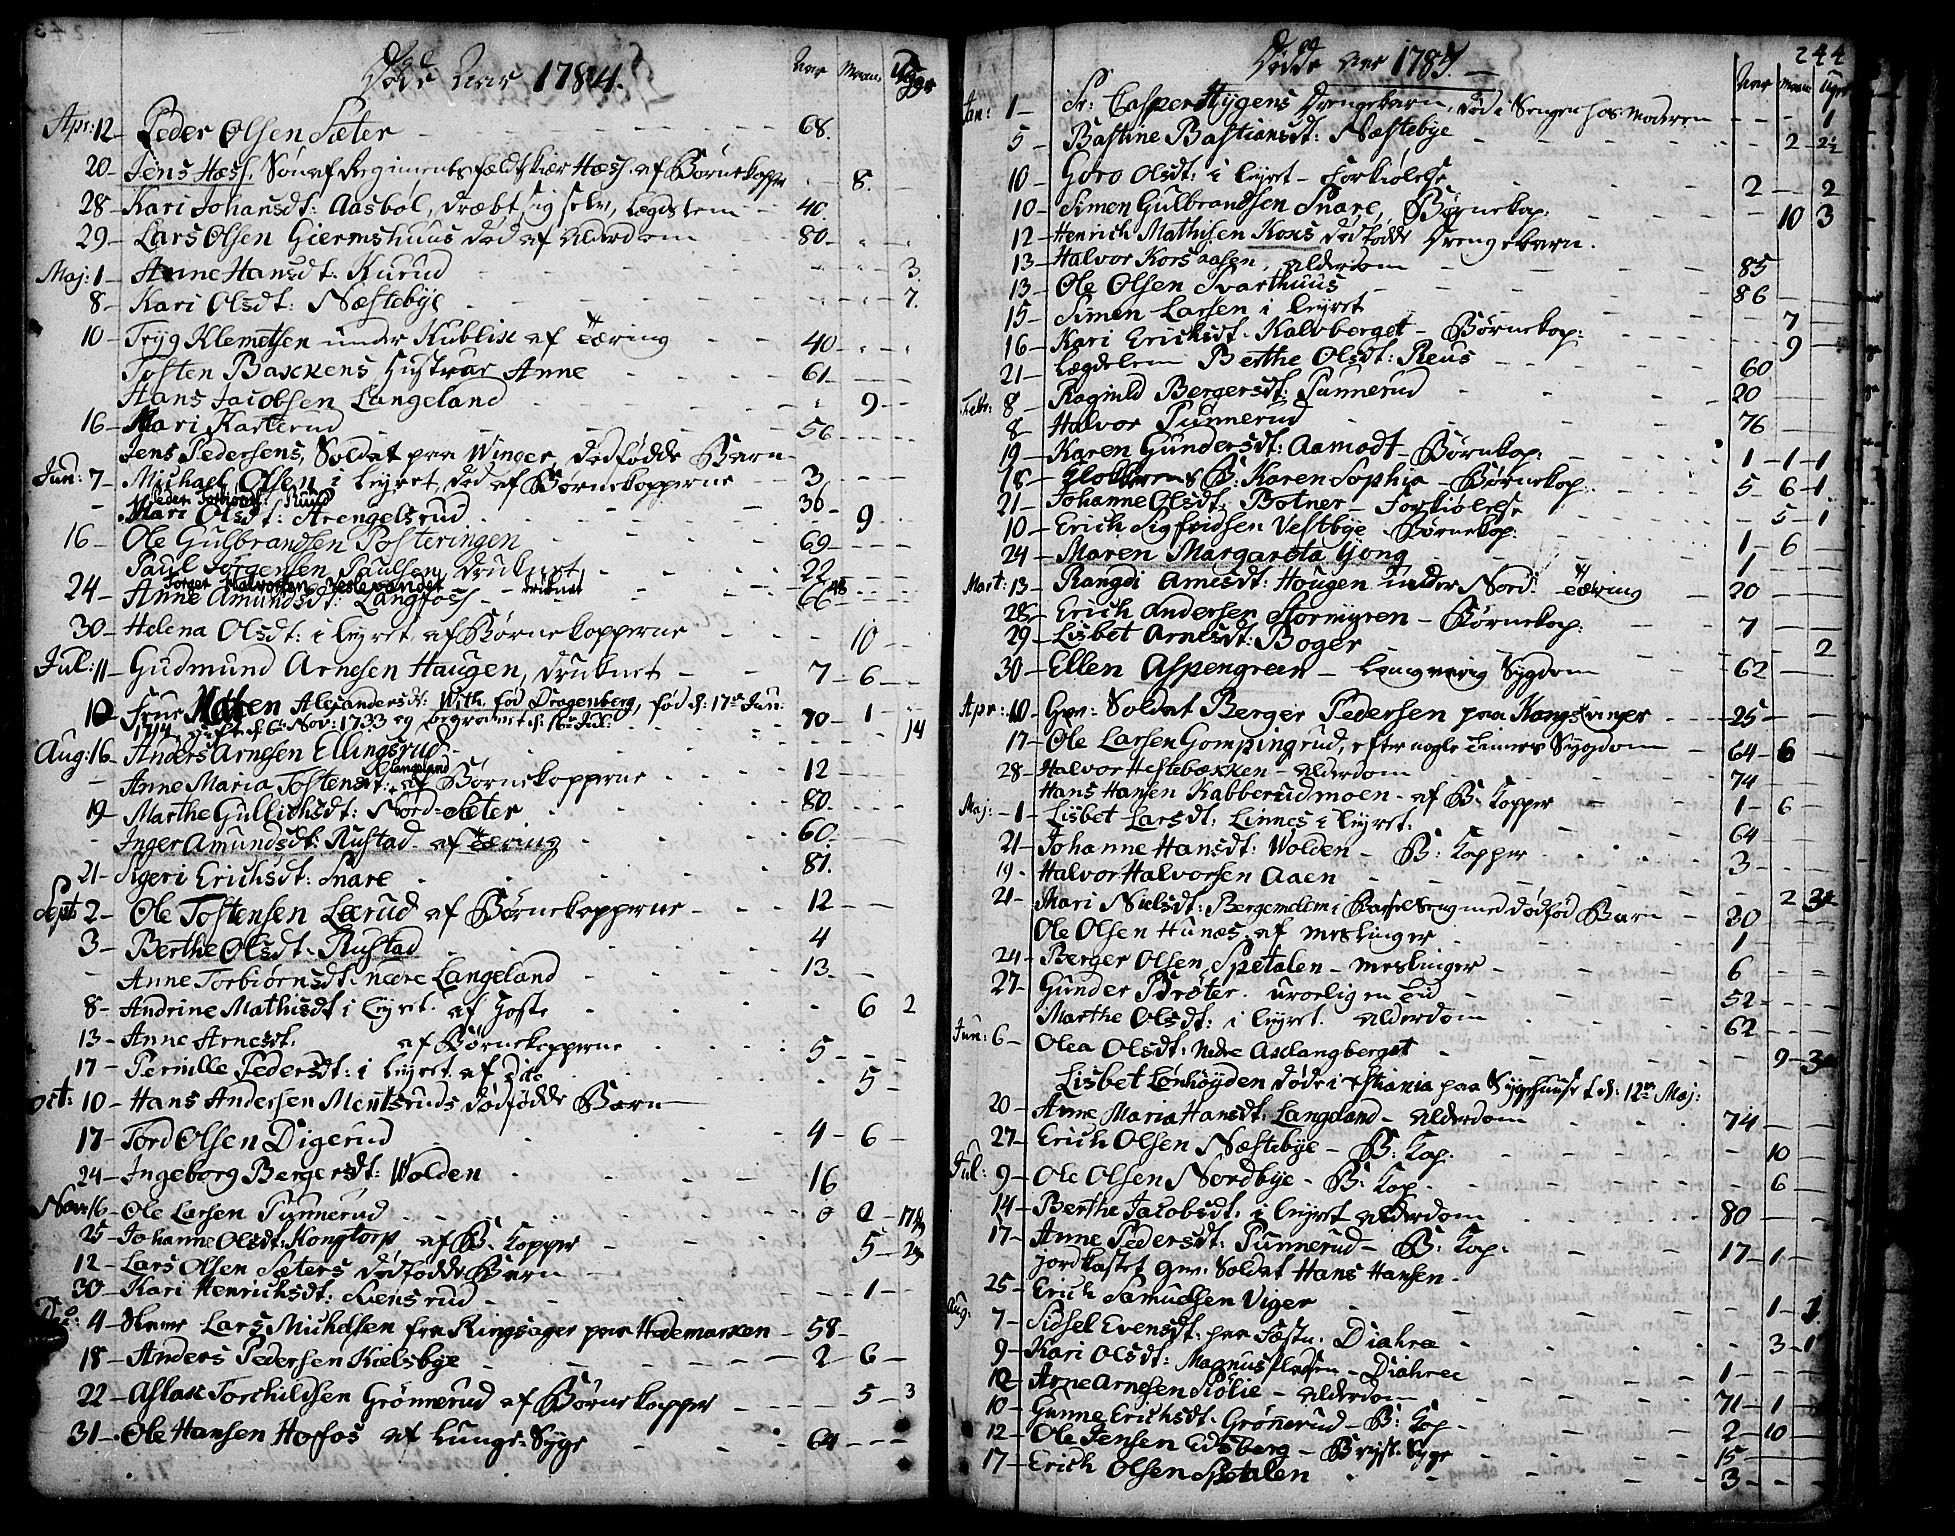 Døde Aar 1784.
Aar Maan: Uger
Apr: 12 Peder Olsen Sæter 68.
20 Jens Hæss. Søn af Regimentsfeldtskiær Hæss. af Børnekopper 8.
28 Kari Johansdt: Aasbøl, dræbt sig selv, Lægdslem 40
29 Lars Olsen Giermshuus død af Alderdom 80
Maj: 1 Anne Hansdt: Kurud 3
8 Kari Olsdt: Næstebye 7.
10 Tryg Klemetsen under Kublix af Tæring 40
Tosten Baxxens Hustrue Anne 61
Hans Jacobsen Langeland 9
16 Mari Karterud 56
Jens Pedersens, Soldat paa Winger dødfødde Barn
Jun: 7 Michael Olsen i Leyret, død af Børnekopperne 3
Peder Ruud 36
Mari Olsdt: Arengelsrud 9
16 Ole Gulbrandsen Posteringen 69
Paul Jørgensen Paulsen, druknet 22
Jørgen Halvorsen druknet
24 Anne Amundsdt: Langfoss 66
30 Helena Olsdt: i Leyret af Børnekopperne 10
Jul: 11 Gudmund Arnesen Haugen, druknet 7 6
10 Frue Maren Alexandersdt: With, fød Dragenberg, fød d: 17de Jun:
1714, gift d: 6te Nov: 1733 og begravet d: 16de Jul: 70 1 14
Aug: 16 Anders Arnesen Ellingsrud
Anne Maria Tostensdt: Langeland af Børnekopperne 12
19 Marthe Gullichsdt: Nord-Sæter 80.
Inger Amundsdt: Rustad af Tæring 60.
21 Sigeri Erichsdt: Snare 81.
Sept: 2 Ole Tostensen Lærud af Børnekopperne 12
3 Berthe Olsdt: Rustad 4
Anne Torbiørnsdt: nedre Langeland 13
8 Andrine Mathisdt i Leyret. af Hoste 6 2
13 Anne Arnesdt. af Børnekopperne 5
17 Pernille Pedersdt: i Leyret af dito 5
Oct: 10 Hans Andersen Mentsruds dødfødde Barn
17 Tord Olsen Digerud 4 6
24 Ingeborg Bergersdt: Wolden 16
Nov: 16 Ole Larsen Punnerud 0 0 17
25 Johanne Olsdt: Kongtorp af B: Kopper 5 2
12 Lars Olsen Sæters dødfødde Barn
30 Kari Henrichsdt: Svensrud 1
Dec: 4 Lars Michelsen fra Ringsager paa Hedemarken 58
18 Anders Pedersen Kielsbye 2 6
22 Aslax Torchildsen Grønnerud af Børnekopper 5 3
31 Ole Hansen Hofos af Lunge-Syge 64
244
Døde Aar 1785.
Aar Maan Uger
Jan: 1 Sr: Casper Hygens Drengebarn, død i Sengen hos Moderen 1
5 Bastine Bastiansdt: Næstebye 2 2½
10 Goro Olsdt: i Leyret Forkiølelse 2 2
10 Simen Gulbrandsen Snare, Børnekop: 10 3
12 Henrich Mathisen Koxs dødfødde Drengebarn.
13 Halvor Korsaasen, Alderdom 85
13 Ole Olsen Svarthuus 86
15 Simen Larsen i Leyret 7
16 Kari Erichsdt: Kalvberget Børnekop: 9
21 Lægdslem Berthe Olsdt: Reus 60
Febr: 8 Ragnild Bergersdt: Punnerud 20
8 Halvor Punnerud 76
19 Karen Gundersdt: Aamodt Børnekop: 1 1 1
18 Klokkerens B: Karen Sophia Børnekop: 5 6 1
21 Johanne Olsdt: Botner Forkiølelse 5 1
10 Erich Sigfridsen Vestbye Børnekop: 1 6
24 Maren Margareta Gong 1
Mart: 13 Rangdi Arnesdt: Hougen under Nord: Tæring 20
28 Erich Andersen Stormyren Børnekop: 7
29 Lisbet Arnesdt: Boger 2
30 Ellen Aspengreen Langvarig Sygdom 62
Apr: 10 Gev: Soldat Berger Pedersen paa Kongsvinger 25
17 Ole Larsen Gompingrud, efter nogle Timers Sygdom 64 6
28 Halvor Hestebæxken Alderdom 74
Hans Hansen Rabberudmoen af B: Kopper 1 6
Maj: 1 Lisbet Larsdt: Linnes i Leyret. 64
21 Johanne Hansdt: Wolden B: Kopper 3
19 Halvor Halvorsen Aaen 2 3
21 Mari Nielsdt: Bergemelem i Barselseng med dødfød Barn 30
Ole Olsen Hunæs af Meslinger 1
24 Berger Olsen Spetalen Meslinger 6
27 Gunder Brøter. urolig en Tid 52
Marthe Olsdt: i Leyret. Alderdom 62
Jun: 6 Olea Olsdt: Nedre Axlangberget 9 3
Lisbet Lønhøyden døde i Xstiania paa Sygehuuset d: 12te Maj:
20 Anne Maria Hansdt: Langeland Alderdom 74
27 Erich Olsen Næstebye B: Kop: 10
Jul: 9 Ole Olsen Nordbye B: Kop. 6
14 Berthe Jacobsdt: i Leyret Alderdom 80
17 Anne Pedersdt: Punnerud B: Kop: 17 1
Jordkastet Gev: Soldat Hans Hansen
25 Erich Samuelsen Viger 1 1
Aug: 7 Sidsel Evensdt: paa Fæstn: Diahræ 3 1
9 Kari Olsdt: Magnus Pladsen Diahræe 1
12 Arne Arnesen Siølie Alderdom 71 1
10 Gunne Erichsdt: Grønerud B: Kop 2 10
12 Ole Jensen Eidsberg Bryst-Syge 15
17 Erich Olsen Spetalen 3